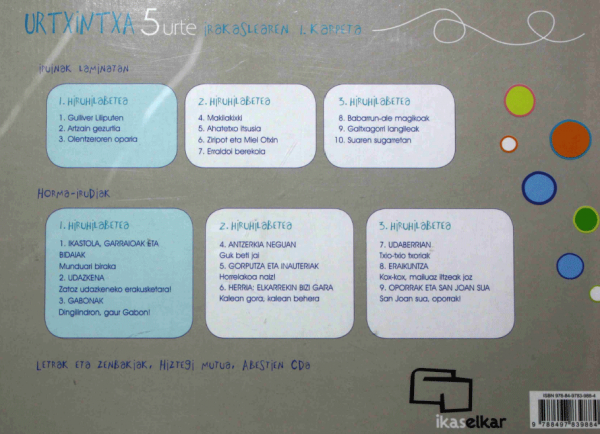 URTXINTXA 5 urte irakaslearen 1. karpeta
ipuinak laminatan
1. HIRUHILABETEA
1. Gulliver Liliputen
2. Artzain gezurtia
3. Olentzeroren oparia
2. HIRUHILABETEA
4. Makilakixki
5. Ahatetxo itsusia
6. Ziripot eta Miel Otxin
7. Erraldoi berekoia
3. HIRUHILABETEA
8. Babarrun-ale magikoak
9. Galtxagorri langileak
10. Suaren sugarretan
HORMA-IRUDIAK
1. HIRUHILABETEA
1. IKASTOLA, GARRAIOAK ETA
BIDAIAK
Munduari biraka
2. UDAZKENA
Zatoz udazkeneko erakusketara!
3. GABONAK
Dingilindron, gaur Gabon!
2. HIRUHILABETEA
4. ANTZERKIA NEGUAN
Guk beti jai
5. GORPUTZA ETA INAUTERIAK
Horrelakoa naiz!
6. HERRIA: ELKARREKIN BIZI GARA
Kalean gora, kalean behera
3. HIRUHILABETEA
7. UDABERRIAN
Txio-txio txoriak
8. ERAIKUNTZA
Kox-kox, mailuaz iltzeak joz
9. OPORRAK ETA SAN JOAN SUA
San Joan sua, oporrak!
LETRAK ETA ZENBAKIAK, HIZTEGI MUTUA, ABESTIEN CDa
ikaselkar